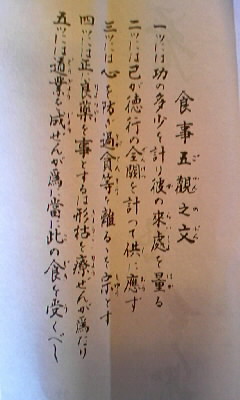 食事五観之文
一ツには功の多少を計り彼の來處を量る
二ツには己が徳行の全闕を計って供に應ず
三ツには心を防ぎ過貪等を離るゝを宗とす
四ツには正に良薬を事とするは形枯を療ぜんが為なり
五ツには道業を成ぜんが為に當に此の食を受くべし